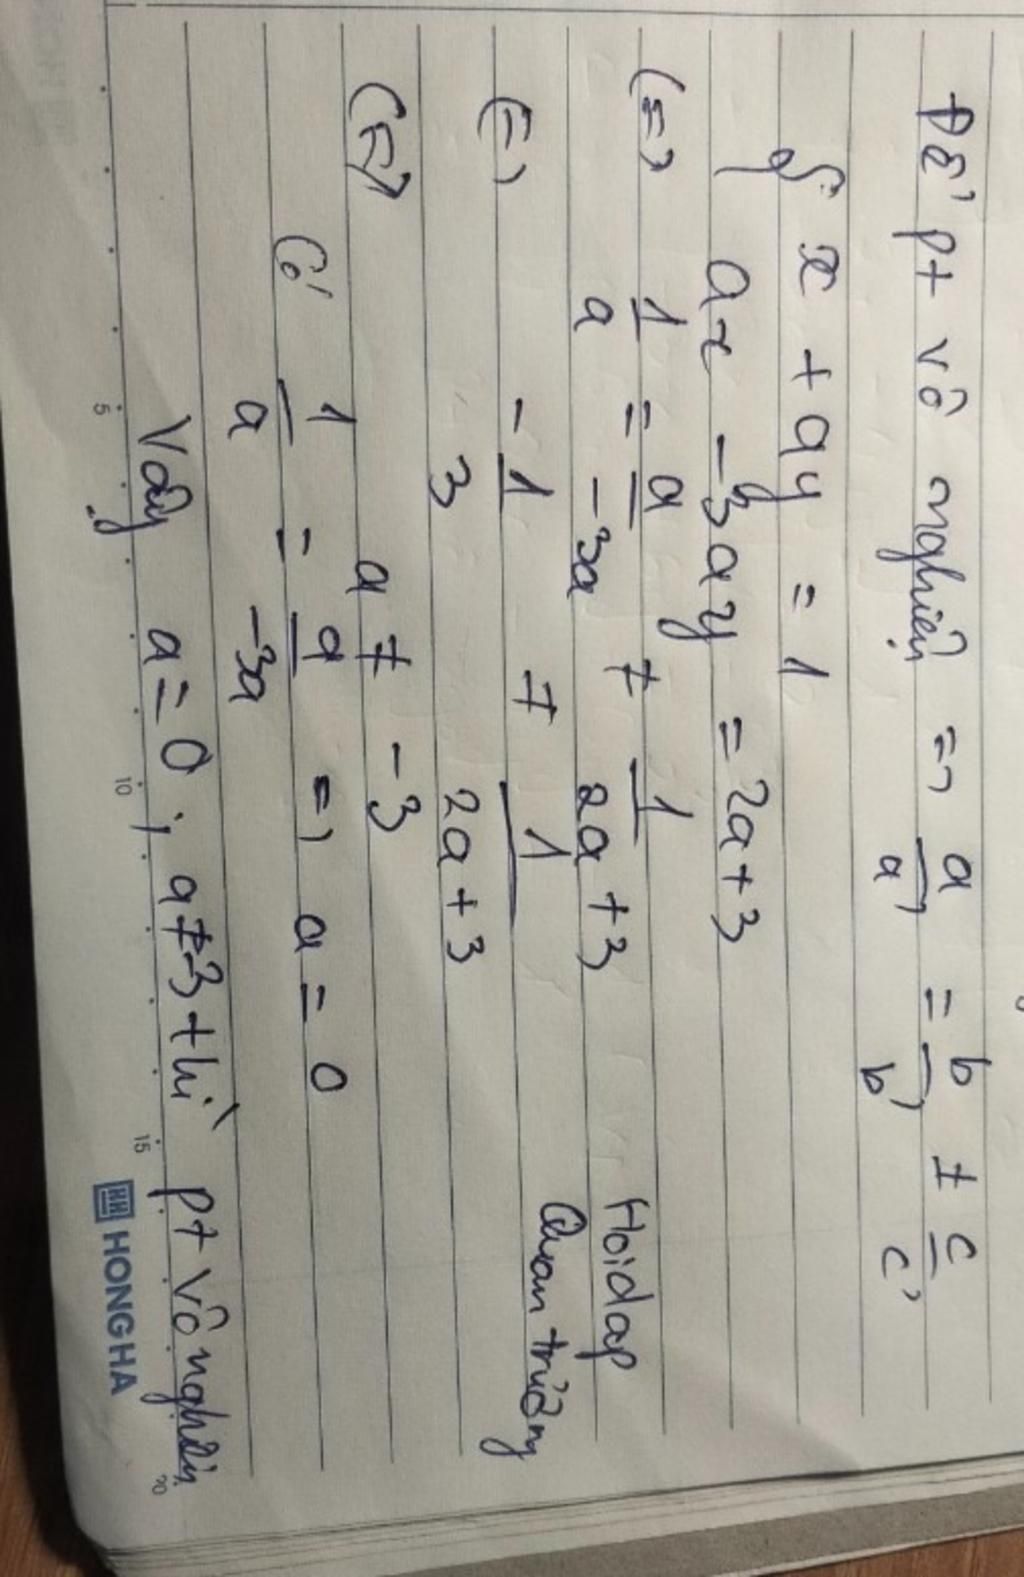 Để pt vô nghiệm => a/a' = b/b' ≠ c/c'
{ x + ay = 1
ax - 3ay = 2a+3
(=) 1/a = a/-3a ≠ 1/2a+3
(=) -1/3 ≠ 1/2a+3
(=) a ≠ -3
Có 1/a = a/-3a => a = 0
Vậy a = 0 ; a ≠ -3 thì pt vô nghiệm
Hoidap
Quan trường
5
10
15
20
HH HONG HA